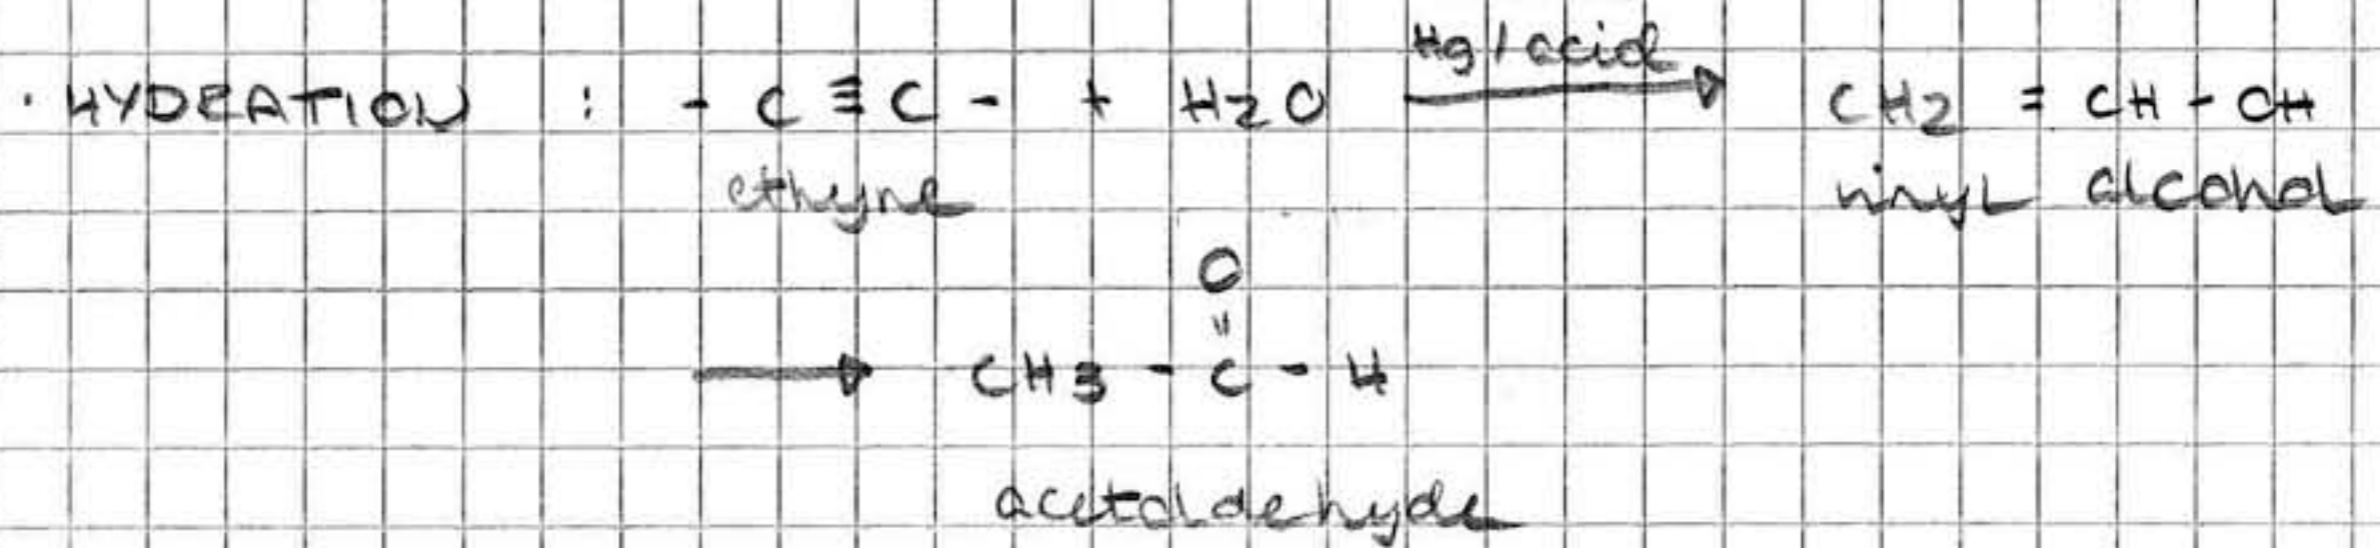 · HYDRATION : - C ≡ C - + H2O Hg / acid → CH2 = CH - OH
ethyne vinyl alcohol
O
"
→ CH3 - C - H
acetaldehyde